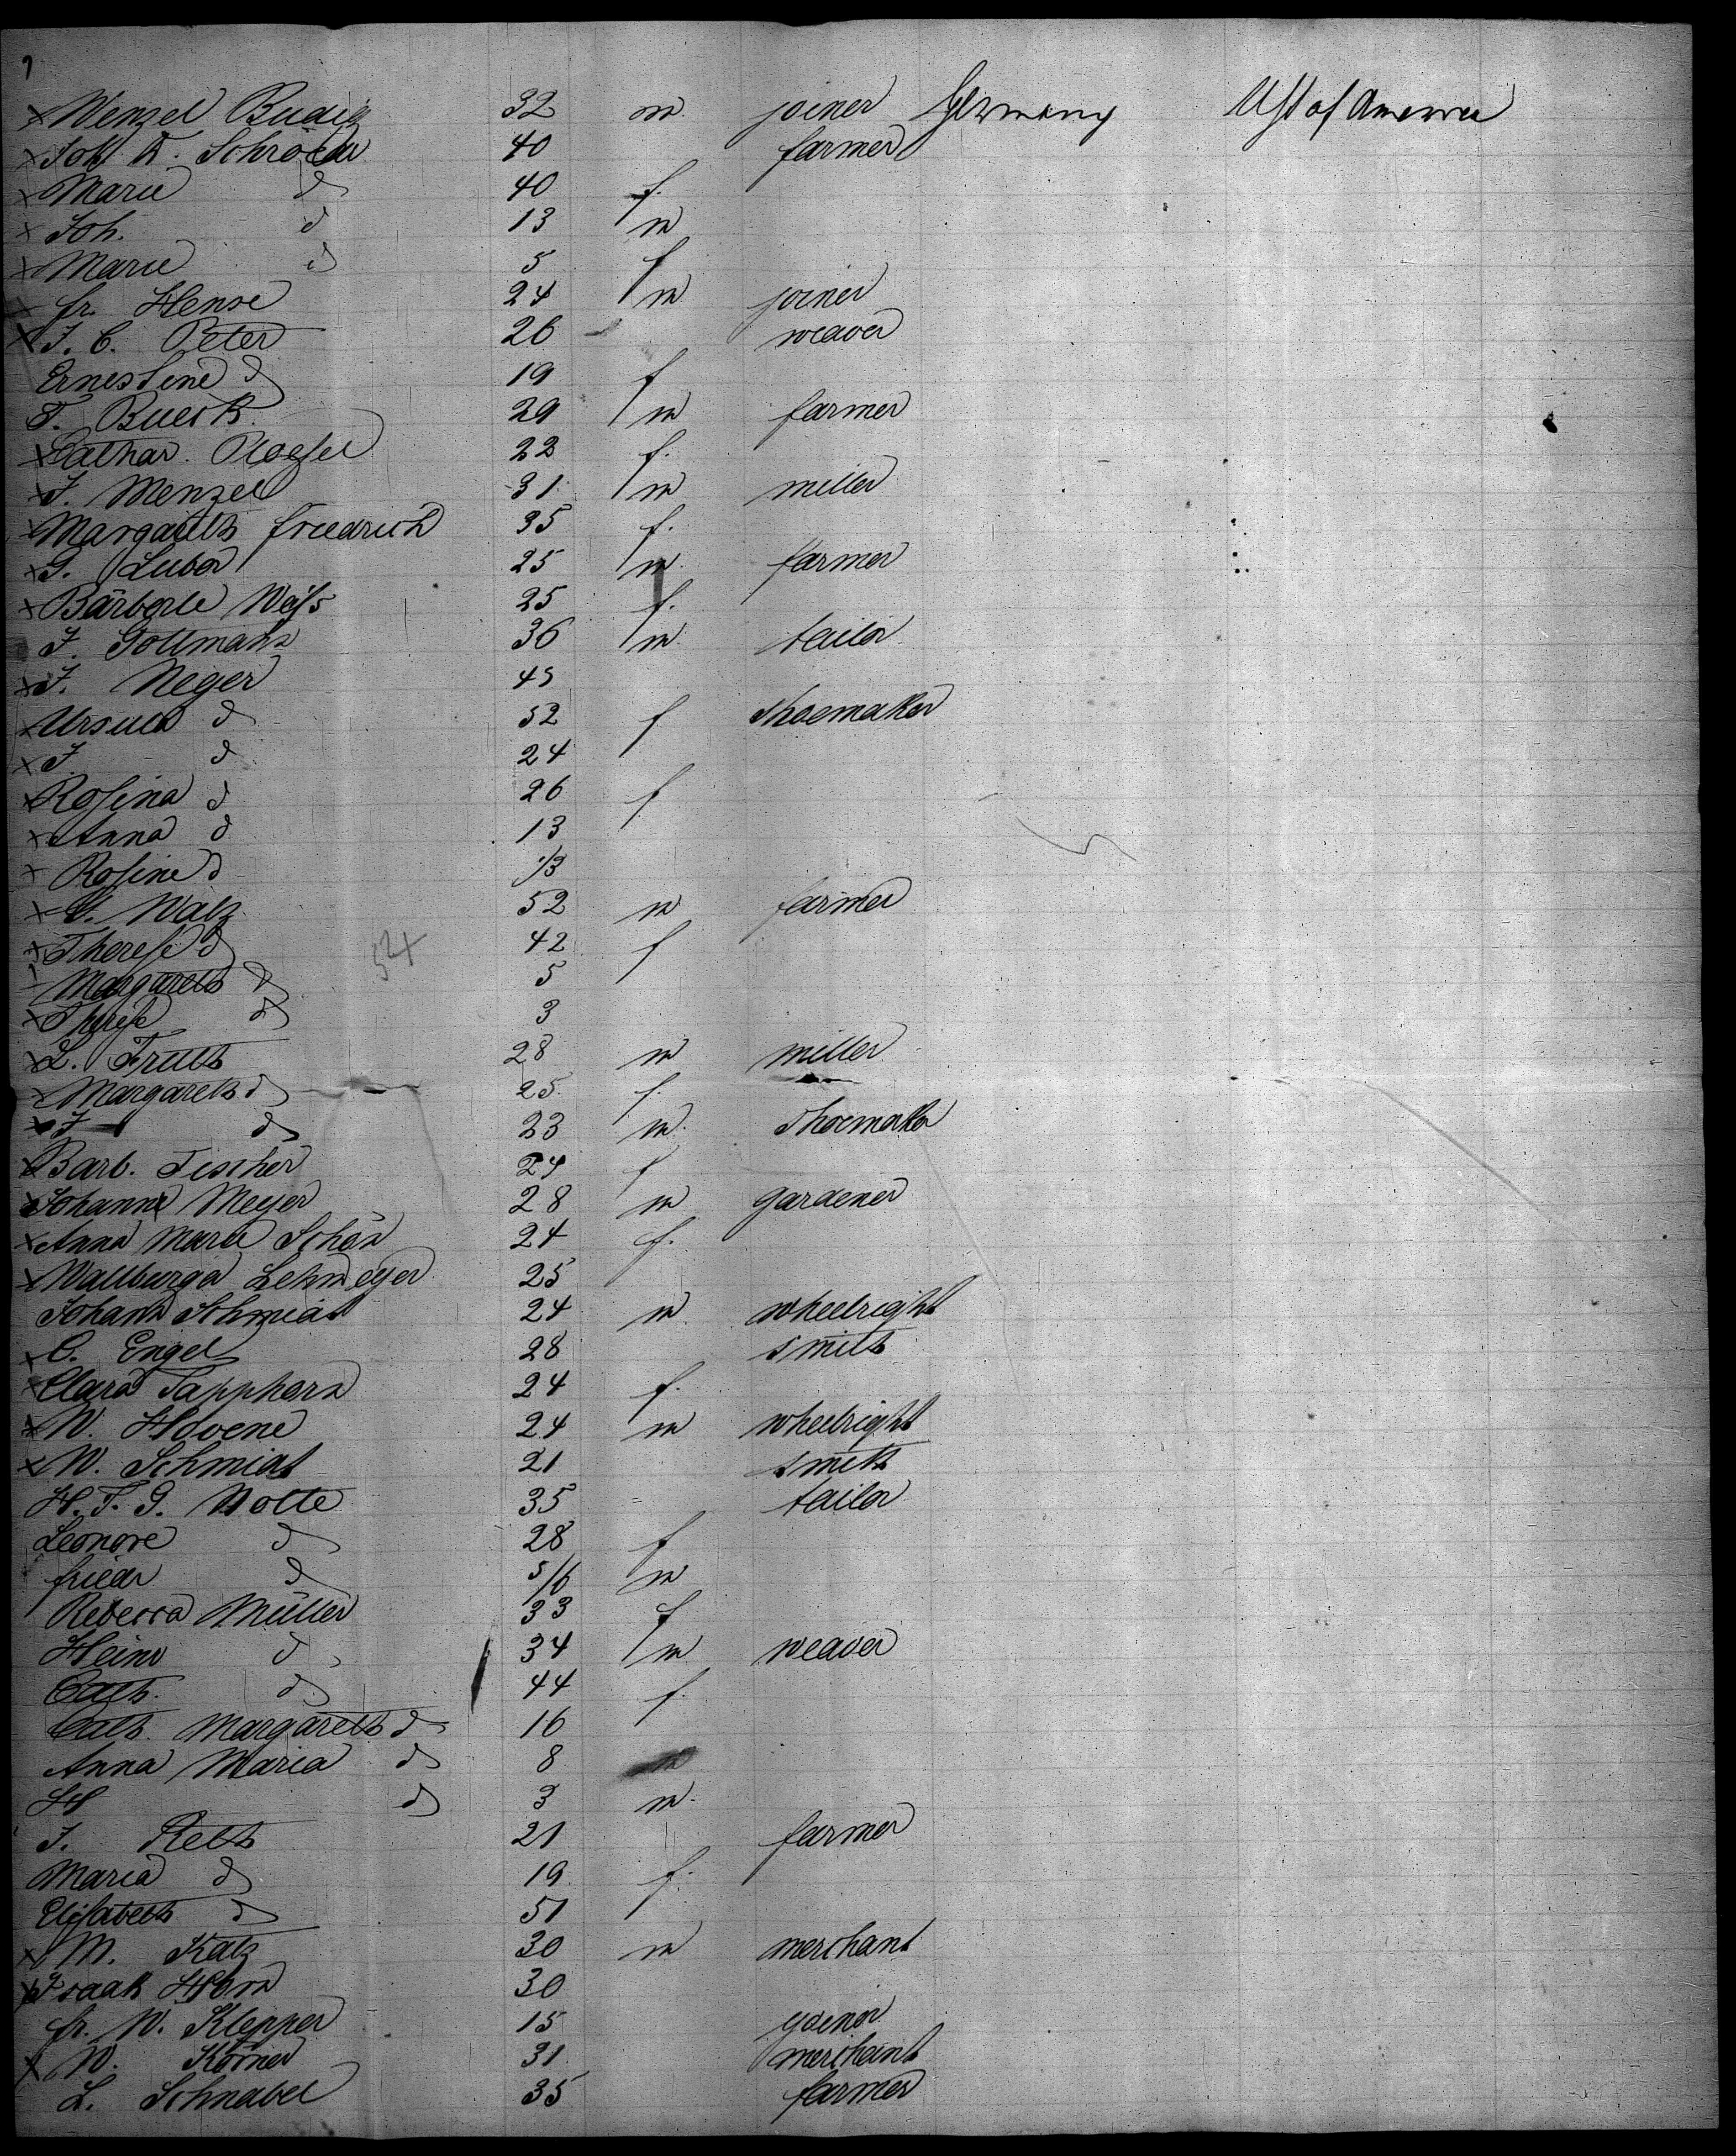 x Wenzel Budig 32 m. joiner Germany USt of America
x Joh D. Schröder 40 farmer
x Marie d 40 f.
x Joh. d 13 m
x Marie d 5 f
x Fr. Hense 24 m joiner
x J. C. Peter 26 weaver
Ernestine d 19 f
T. Bueck 29 m farmer
x Cathar. 22 f.
x J. Menzel 31 m miller
x Margareth Friedrich 35 f.
x G. Lubor 25 m. farmer
x Bärberle Weiss 25 f.
J. Gollmann 36 m. tailor
x J. Neger 45
x Ursula d 52 f shoemaker
x J. d 24
x Rosina d 26 f
x Anna d 13
x Rosine d 1/3
x Walz 52 m farmer
x Therese d 42 f
Margareth d 5
x Therese d 3
x L. Fruth 28 m miller
x Margareth d 25. f.
x J d 23 m. shoemaker
x Barb. Fischer 24 f
x Johann Meyer 28 m gardener
x Anna Maria Schön 24 f.
x Wallburga Lehmeyer 25
Johann Schmidt 24 m wheelright
x C. Engel 28 smith
x Clara Tapphorn 24 f.
x W. Hövene 24 m wheelright
x W. Schmidt 21 smith
H. F. G. Nolte 35 tailor
Leonore d 28 f
Friedr d 5/6 m
Rebecca Müller 33 f
Heinr d 34 m weaver
Cath. d 44 f.
Cath. Margareth d 16
Anna Maria d 8 m
H d 3 m.
J. Reth 21 farmer
Maria d 19 f.
Elisabeth d 51
x M. Katz 30 m merchant
x Isaak Horn 30
Fr. W. Klepper 15 joiner
x W. Körner 31 merchant
L. Schnabel 35 farmer